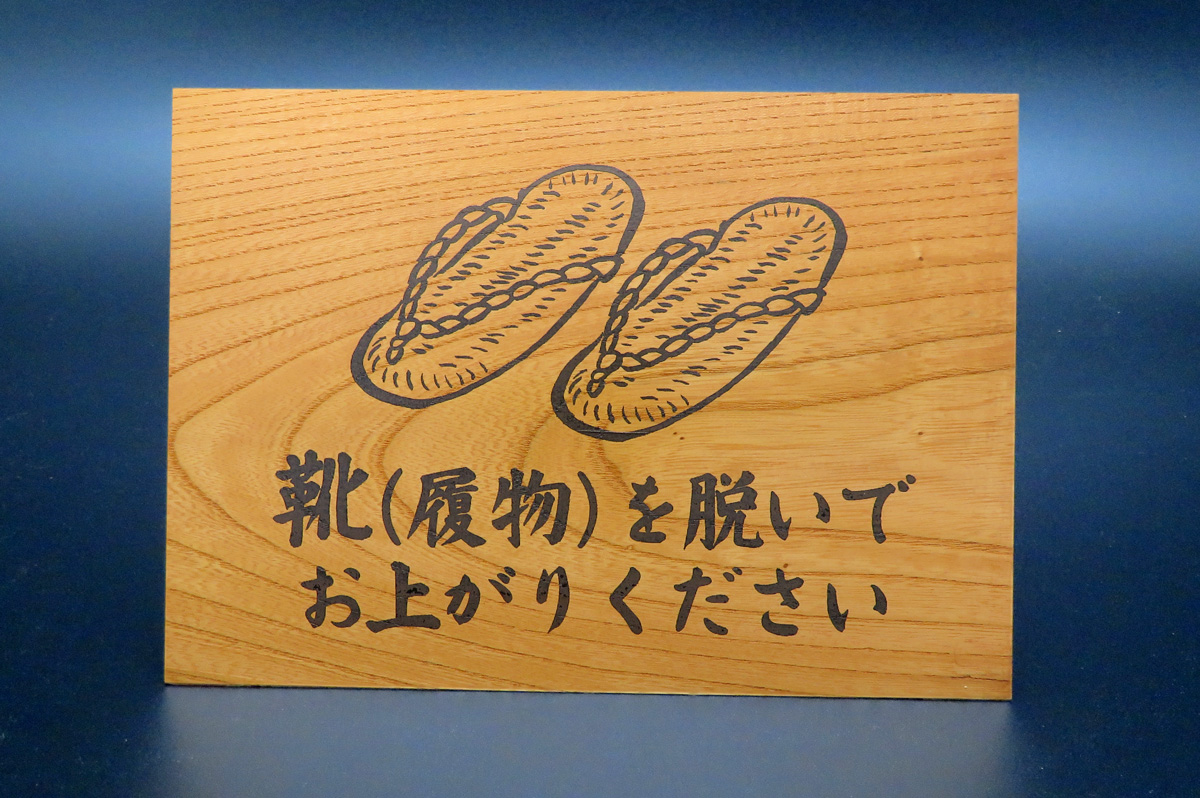 靴(履物)を脱いで
お上がりください